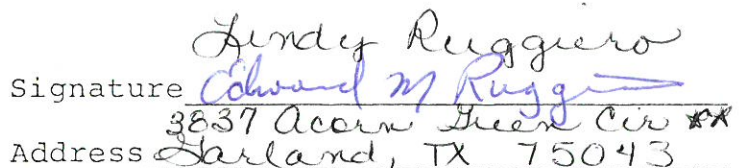 Lindy Ruggiero
Signature Edward M Ruggi
3837 Acorn Green Cir **
Address Garland, TX 75043